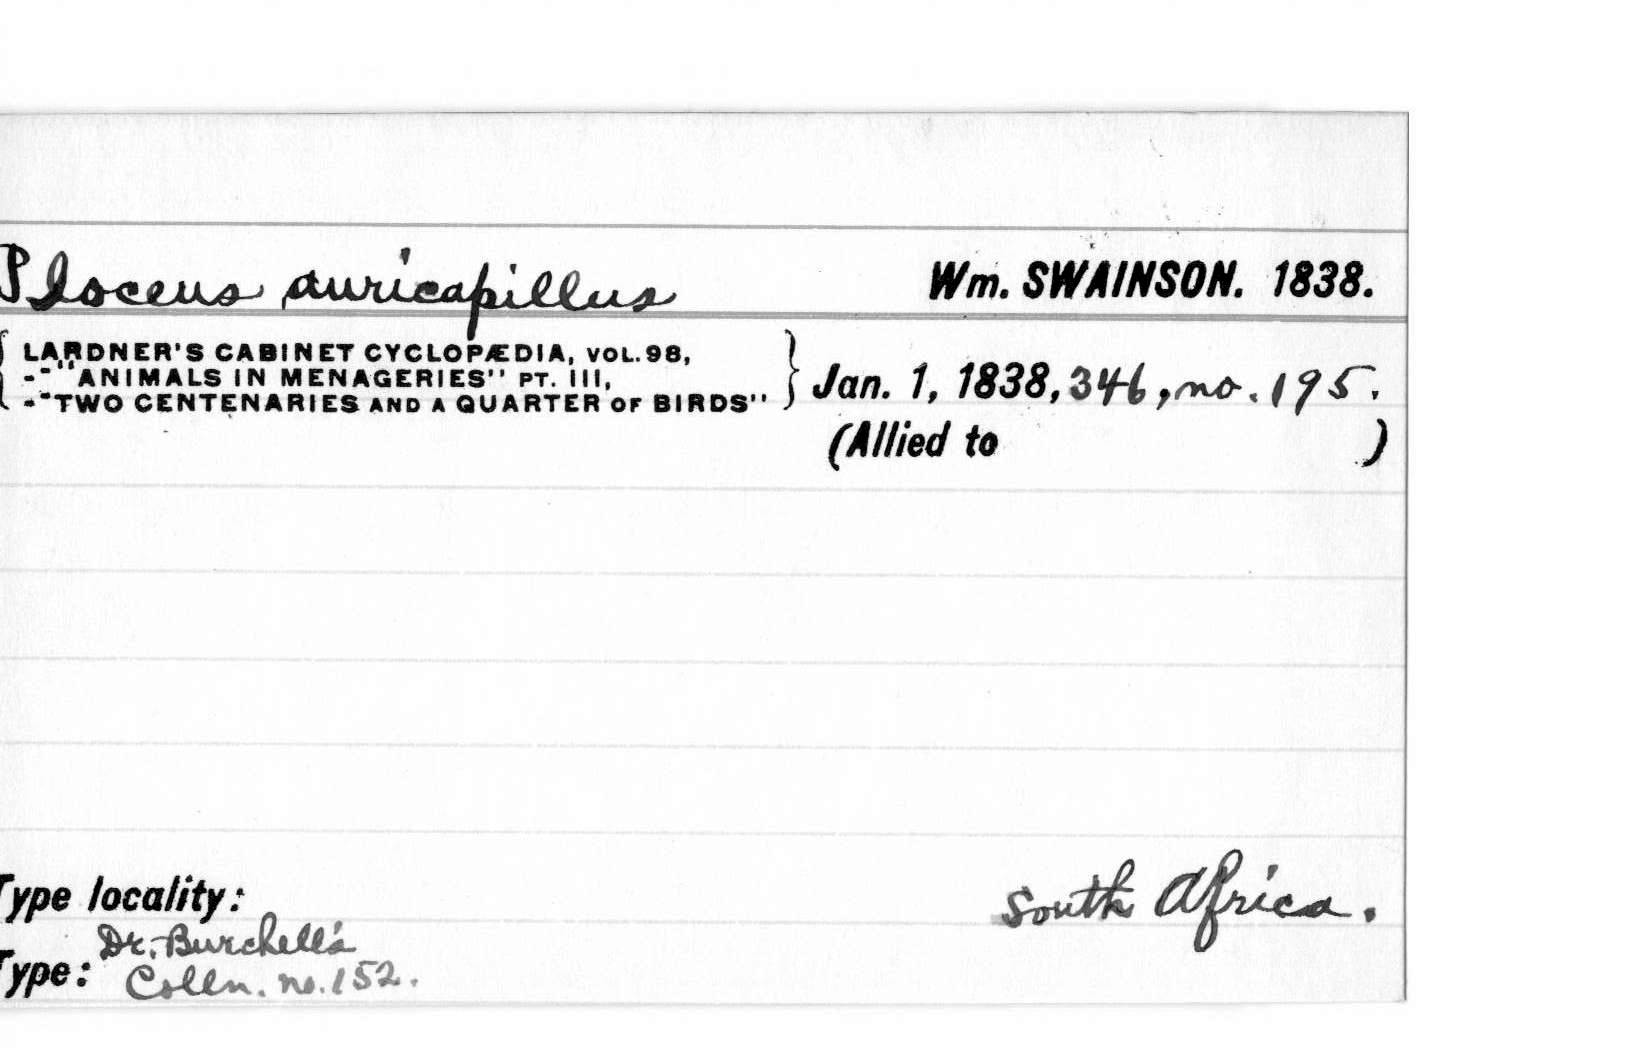 Ploceus auricapillus Wm. SWAINSON. 1838.
{ LARDNER'S CABINET CYCLOPÆDIA, VOL.98,
--"ANIMALS IN MENAGERIES" PT. III,
--"TWO CENTENARIES AND A QUARTER OF BIRDS" } Jan. 1, 1838, 346, no. 195.
(Allied to )
Type locality: South Africa.
Dr. Burchell's
Type: Colln. no. 152.